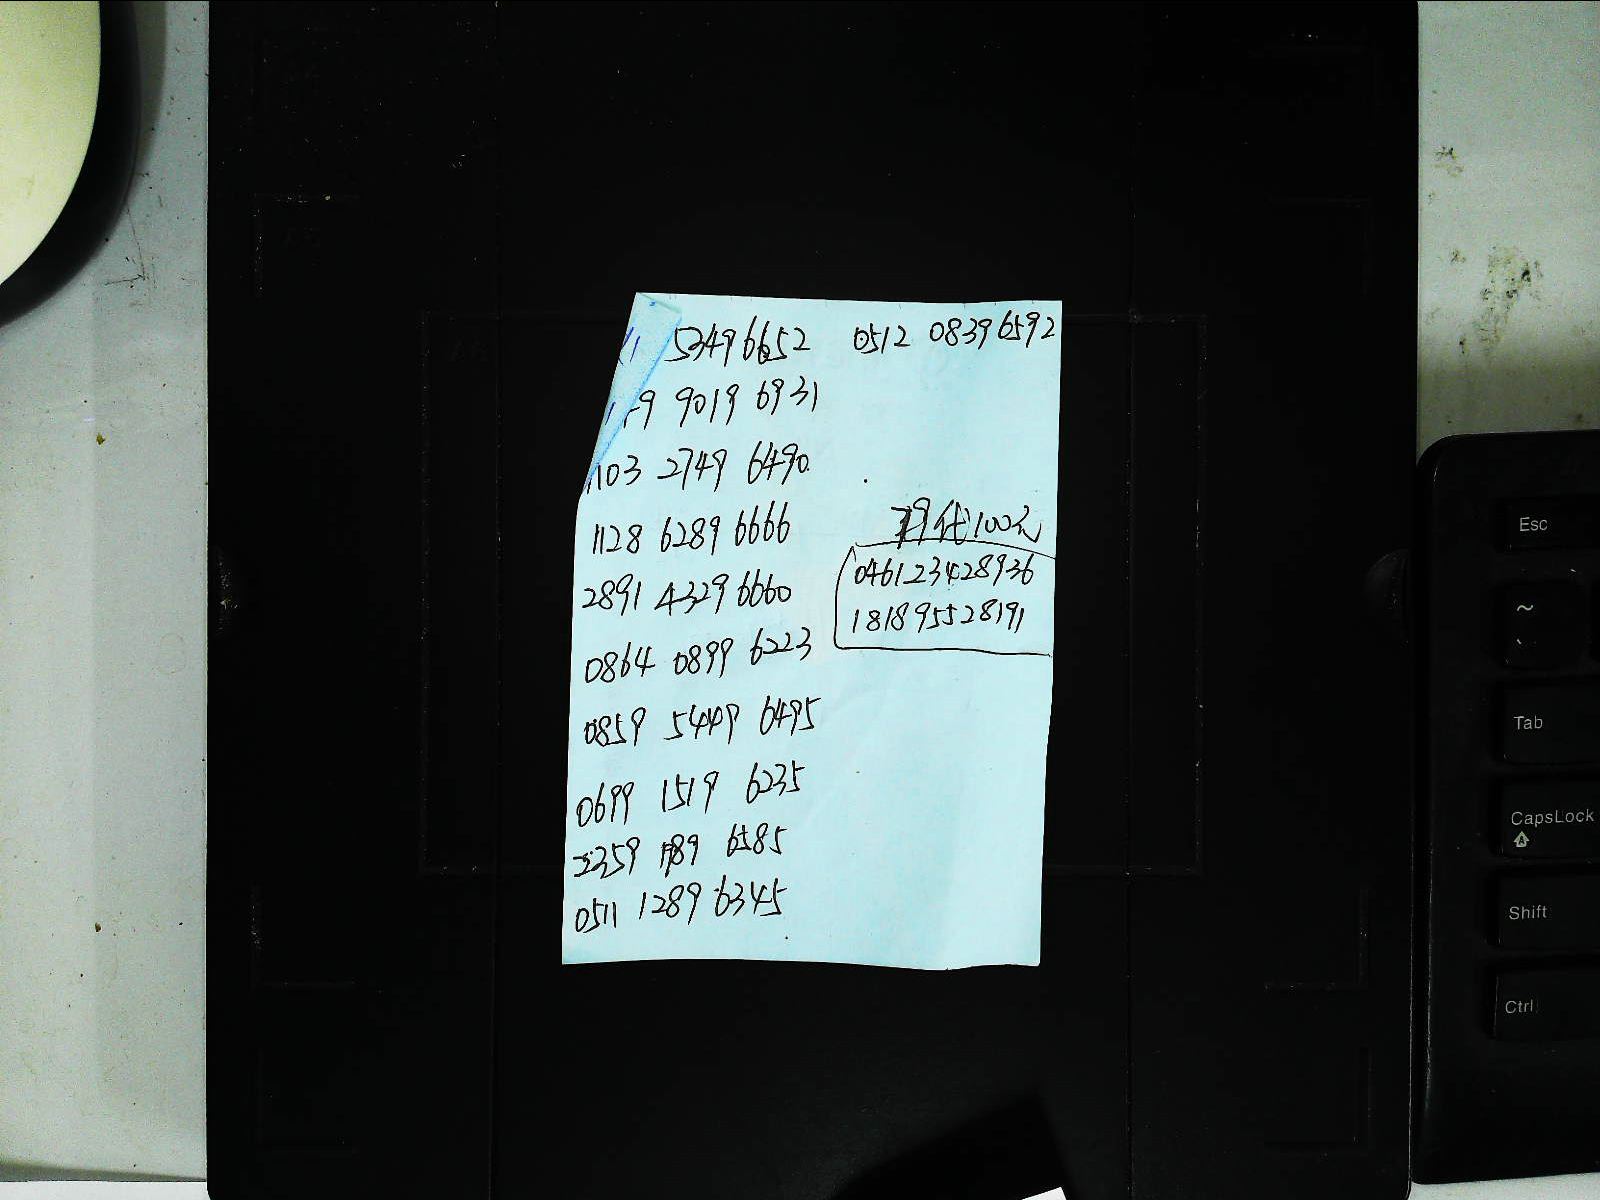 5349 6652 0512 0839 6592
9 9019 6931
1103 2749 6490
1128 6289 6666
2891 4329 6660
0864 0899 6223
0859 5449 6495
0699 1519 6235
2359 1789 6585
0511 1289 6345
100元
046123428936
181895528191
Esc
~
Tab
CapsLock
Shift
Ctrl